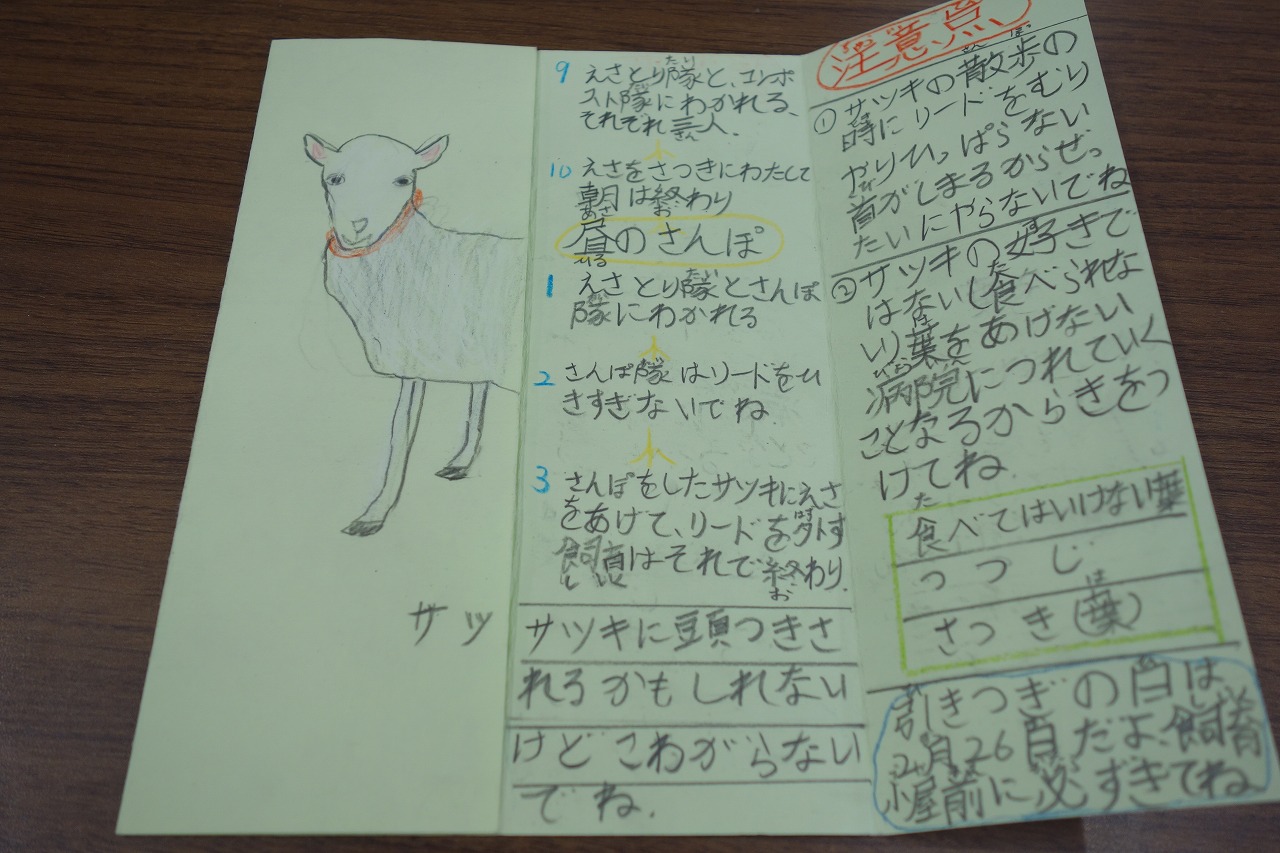 サツ
9 えさとり隊と、コンポ
スト隊にわかれる、
それぞれ三人.
10 えさをさつきにわたして
朝は終わり
昼のさんぽ
1 えさとり隊とさんぽ
隊にわかれる
2 さんぽ隊はリードをひ
きすぎないでね
3 さんぽをしたサツキにえさ
をあげて、リードを外す
飼育はそれで終わり.
サツキに頭つきさ
れるかもしれない
けどこわがらない
でね.
注意点
① サツキの散歩の
時にリードをむり
やりひっぱらない
首がしまるからぜっ
たいにやらないでね
② サツキの好きで
はないし食べられな
い葉をあげない
病院につれていく
ことなるからきをつ
けてね
食べてはいけない葉
つつじ
さつき(葉)
引きつぎの日は
2月26日だよ、飼育
小屋前に必ずきてね